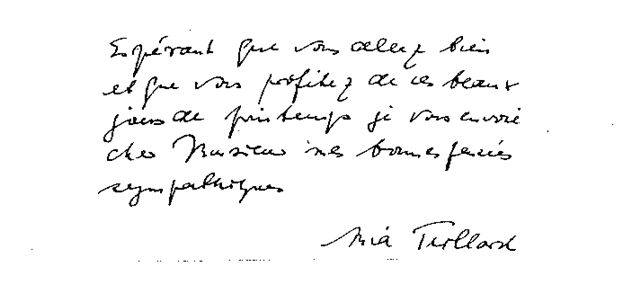 Espérant que vous allez bien
et que vous profitez de ces beaux
jours de printemps je vous envoie
cher Monsieur mes bonnes pensées
sympathiques
Ania Teillard